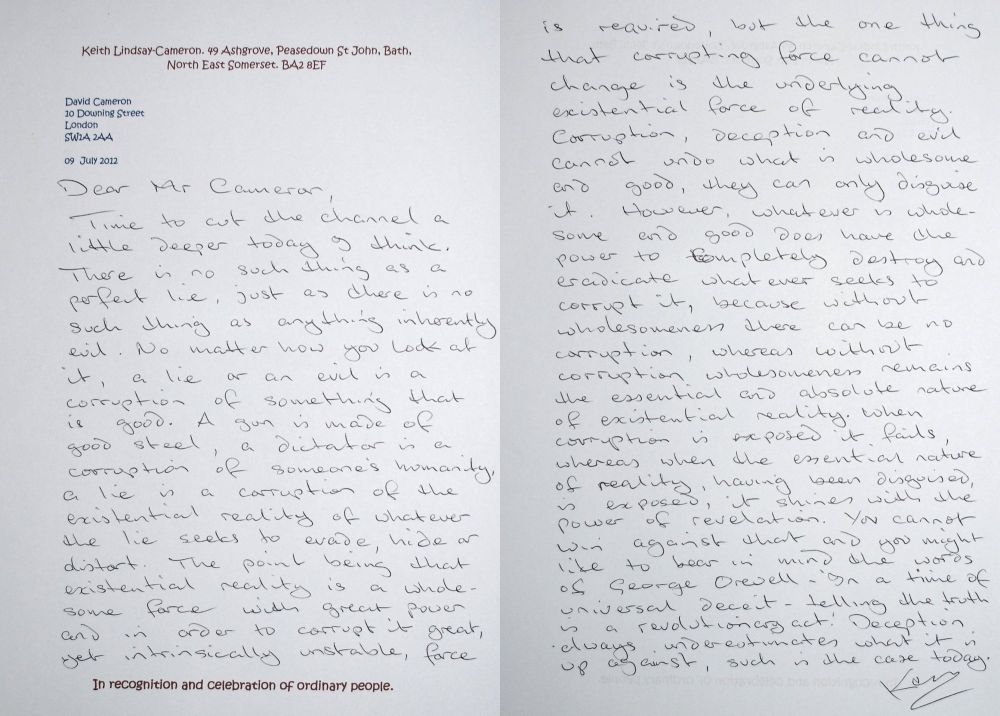 Keith Lindsay-Cameron. 49 Ashgrove, Peasedown St John, Bath,
North East Somerset. BA2 8EF
David Cameron
10 Downing Street
London
SW1A 2AA
09 July 2012
Dear Mr Cameron,
Time to cut the channel a
little deeper today I think.
There is no such thing as a
perfect lie, just as there is no
such thing as anything inherently
evil. No matter how you look at
it, a lie or an evil is a
corruption of something that
is good. A gun is made of
good steel, a dictator is a
corruption of someone's humanity,
a lie is a corruption of the
existential reality of whatever
the lie seeks to evade, hide or
distort. The point being that
existential reality is a whole-
some force with great power
and in order to corrupt it great,
yet intrinsically unstable, force
In recognition and celebration of ordinary people.
is required, but the one thing
that corrupting force cannot
change is the underlying
existential force of reality.
Corruption, deception and evil
cannot undo what is wholesome
and good, they can only disguise
it. However, whatever is whole-
some and good does have the
power to completely destroy and
eradicate whatever seeks to
corrupt it, because without
wholesomeness there can be no
corruption, whereas without
corruption wholesomeness remains
the essential and absolute nature
of existential reality. When
corruption is exposed it fails,
whereas when the essential nature
of reality, having been disguised,
is exposed, it shines with the
power of revelation. You cannot
win against that and you might
like to bear in mind the words
of George Orwell - 'In a time of
universal deceit - telling the truth
is a revolutionary act.' Deception
always underestimates what it is
up against, such is the case today.